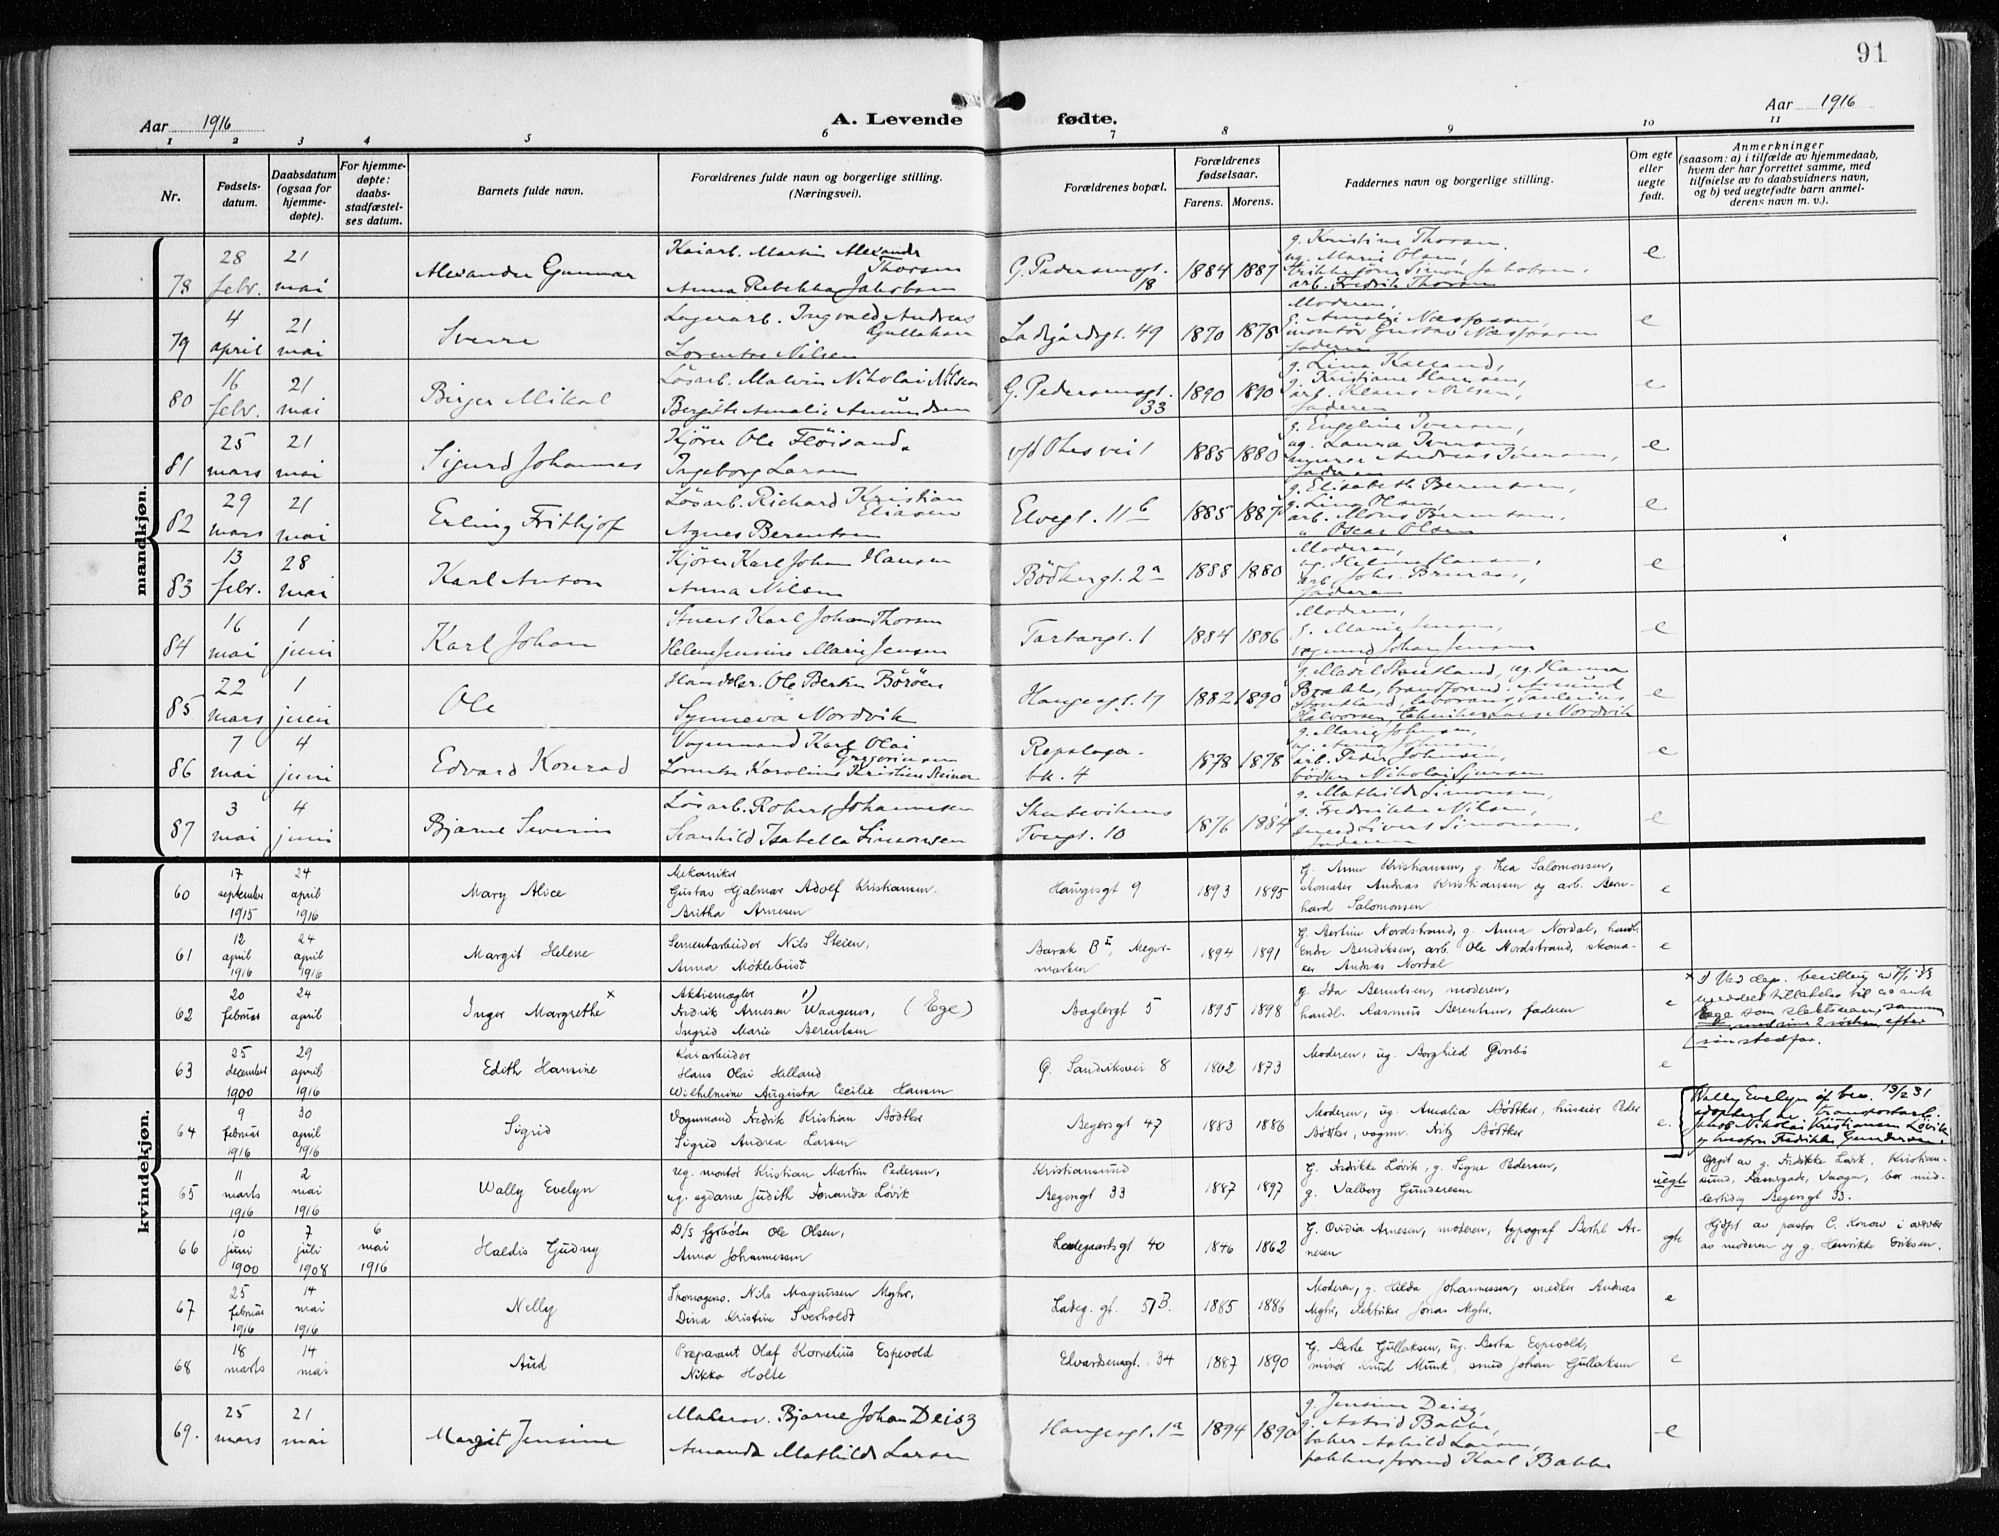 91
Aar 1916
A. Levende fødte.
Aar 1916
1 2 3 4 5 6 7 8 9 10 11
Nr.
Fødsels-
datum.
Daabsdatum
(ogsaa for
hjemme-
døpte).
For hjemme-
døpte:
daabs-
stadfæstel-
ses datum.
Barnets fulde navn.
Forældrenes fulde navn og borgerlige stilling.
(Næringsvei).
Forældrenes bopæl.
Forældrenes
fødselsaar.
Farens. Morens.
Faddernes navn og borgerlige stilling.
Om egte
eller
uegte
født.
Anmerkninger
(saasom: a) i tilfælde av hjemmedaab,
hvem der har forrettet samme, med
tilføielse av to daabsvidners navn,
og b) ved uegtefødte barn anmel-
derens navn m. v.).
mandkjøn.
78
28
febr.
21
mai
Alexander Gunnar
Kaiarb. Martin Alexander
Thorsen
Anna Rebekka Jakobsen
G. Pedersensgt.
18
1884 1887
g. Kristine Thorsen,
ug. Marie Olsen,
Simon Jakobsen,
arb. Fredrik Thorsen
e
79
4
april
21
mai
Sverre
Lagerarb. Ingvald Andreas
Gullaksen
Lorentse Nilsen
Ladegårdsgt. 49
1870 1878
Moderen,
g. Amalie Næsfossen,
montør Gustav Næsfossen
faderen
e
80
16
febr.
21
mai
Birger Mikal
Løsarb. Malvin Nikolai Nilsen
Bergitte Amalie Amundsen
G. Pedersensgt.
33
1890 1890
g. Lina Kalland,
g. Kristiane Hansen,
arb. Klaus Nilsen,
faderen
e
81
25
mars
21
mai
Sigurd Johannes
Kjører Ole Fløisand,
Ingeborg Larsen
v/d Ohesvei 1
1885 1880
g. Engeline Iversen,
ug. Laura Iversen,
murer Andreas Iversen,
faderen
e
82
29
mars
21
mai
Erling Frithjof
Løsarb. Richard Kristian
Eliasen
Agnes Berentsen
Elvegt. 11 b
1885 1887
g. Elisabeth Berentsen,
g. Lina Olsen,
arb. Mons Berentsen,
" Oscar Olsen
e
83
13
febr.
28
mai
Karl Anton
Kjører Karl Johan Hansen
Anna Nilsen
Bødkergt. 2 a
1888 1880
Moderen,
ug. Helene Hansen,
arb. Johs. Bruraas,
faderen
e
84
16
mai
1
juni
Karl Johan
Stuert Karl Johan Thorsen
Helene Jensine Marie Jensen
Tartargt. 1
1884 1886
Moderen,
g. Marie Jensen,
vognmd Johan Jensen
e
85
22
mars
1
juni
Ole
Handelsr. Ole Berten Børøen
Synneva Nordvik
Haugesgt. 17
1882 1890
g. Madel Stautland, ug. Hanna
Brakke, brandformd. Amund
Stautland,
Halvorsen, Lars Nordvik
e
86
7
mai
4
juni
Edvard Konrad
Vognmand Karl Olai
Gregoriussen
Lorentse Karoline Kristine Steiner
Repslager-
bk. 4
1878 1878
g. Marie Johnsen,
ug. Anna Johnsen,
arb. Peder Johnsen,
bødker Nikolai Sjursen
e
87
3
mai
4
juni
Bjarne Severin
Løsarb. Robert Johannesen
Svanhild Isabella Simonsen
Skutevikens
Tvergt. 10
1876 1884
g. Mathilde Simonsen,
g. Fredrikke Nilsen,
smed Sivert Simonsen,
faderen
e
kvindekjøn.
60
17
september
1915
24
april
1916
Mary Alice
Mekaniker
Gustav Hjalmar Adolf Kristiansen.
Britha Arnesen
Haugesgt 9
1893 1895
G. Anne Kristiansen, g. Thea Salomonsen,
skomaker Andreas Kristiansen og arb. Bern-
hard Salomonsen
e
61
12
april
1916
24
april
1916
Margit Helene
Sementarbeider Nils Steien,
Anna Møklebust
Barak B II, Møger-
marken
1894 1891
G. Bertine Nordstrand, g. Anna Nordal, handl.
Endre Bendiksen, arb. Ole Nordstrand, skoma-
ker Andreas Nordal
e
62
20
februar
24
april
Inger Margrethe x
Aktiemægler 1)
Fredrik Arnesen Waagenes, (Ege)
Ingrid Marie Berentsen
Baglergt 5
1895 1898
g. Ida Berentsen, moderen,
handl. Rasmus Berentsen, faderen
e
x 1) Ved dep. bevilling
meddelt tillatelse til å anta
Ege som slektsnavn, sammen
med sine 2 søsken, efter
sin stedfar.
63
25
december
1900
29
april
1916
Edith Hansine
Kaiarbeider
Hans Olai Helland
Wilhelmine Augusta Cecilie Hansen
G. Sandviksvei 8
1862 1873
Moderen, ug. Borghild Gursbø
e
64
9
februar
1916
30
april
1916
Sigrid
Vognmand Fredrik Kristian Bødtker
Sigrid Andrea Larsen
Begersgt 47
1883 1886
Moderen, ug. Amalia Bødtker, huseier Peder
Bødtker, vognm. Fritz Bødtker
e.
Wally Evelyn if. bev. 13/2 31
adoptert av transportarb.
Jakob Nikolai Kristiansen Løvik
og hustru Fredrikke Gundersen.
65
11
marts
1916
2
mai
1916
Wally Evelyn
ug. montør Kristian Martin Pedersen,
ug. sydame Judith Fernanda Løvik
Kristiansund
Begersgt 33
1887 1897
G. Fredrikke Løvik, g. Signe Pedersen,
g. Valborg Gundersen
uegte
Opgit av g. Fredrikke Løvik. Kristian-
sund, Vaagen, bor mid-
lertidig Begersgt 33.
66
10
juni
1900
7
juli
1908
6
mai
1916
Haldis Gudny
D/s fyrbøter Ole Olsen,
Anna Johannessen
Ladegaardsgt 40
1846 1862
G. Ovidia Arnesen, moderen, typograf Berthl Ar-
nesen
egte
Hjdøpt av pastor C. Konow i nærvær
av moderen og g. Henrikke Eriksen.
67
25
februar
1916
14
mai
1916
Nelly
Nils Magnussen Myhr,
Dina Kristine Sverholdt
Ladeg. gt. 51 B.
1885 1886
Moderen, g. Hilda Johannessen, snedker Andreas
Myhr, elektriker Jonas Myhr.
e
68
18
marts
14
mai
Aud
Preparant Olaf Kornelius Espevold
Nikka Holte
Edvardsensgt 34
1887 1890
G. Berte Gullaksen, ug. Berta Espevold,
minør Knud Munk, smed Johan Gullaksen
e
69.
25
mars
21
mai
Margit Jensine
Malersv. Bjarne Johan Deisz
Amanda Mathilde Larsen
Haugesgt. 1 a
1894 1890
g. Jensine Deisz,
g. Astrid Bakke,
baker Larsen,
pakhusformd Karl Bakke
e